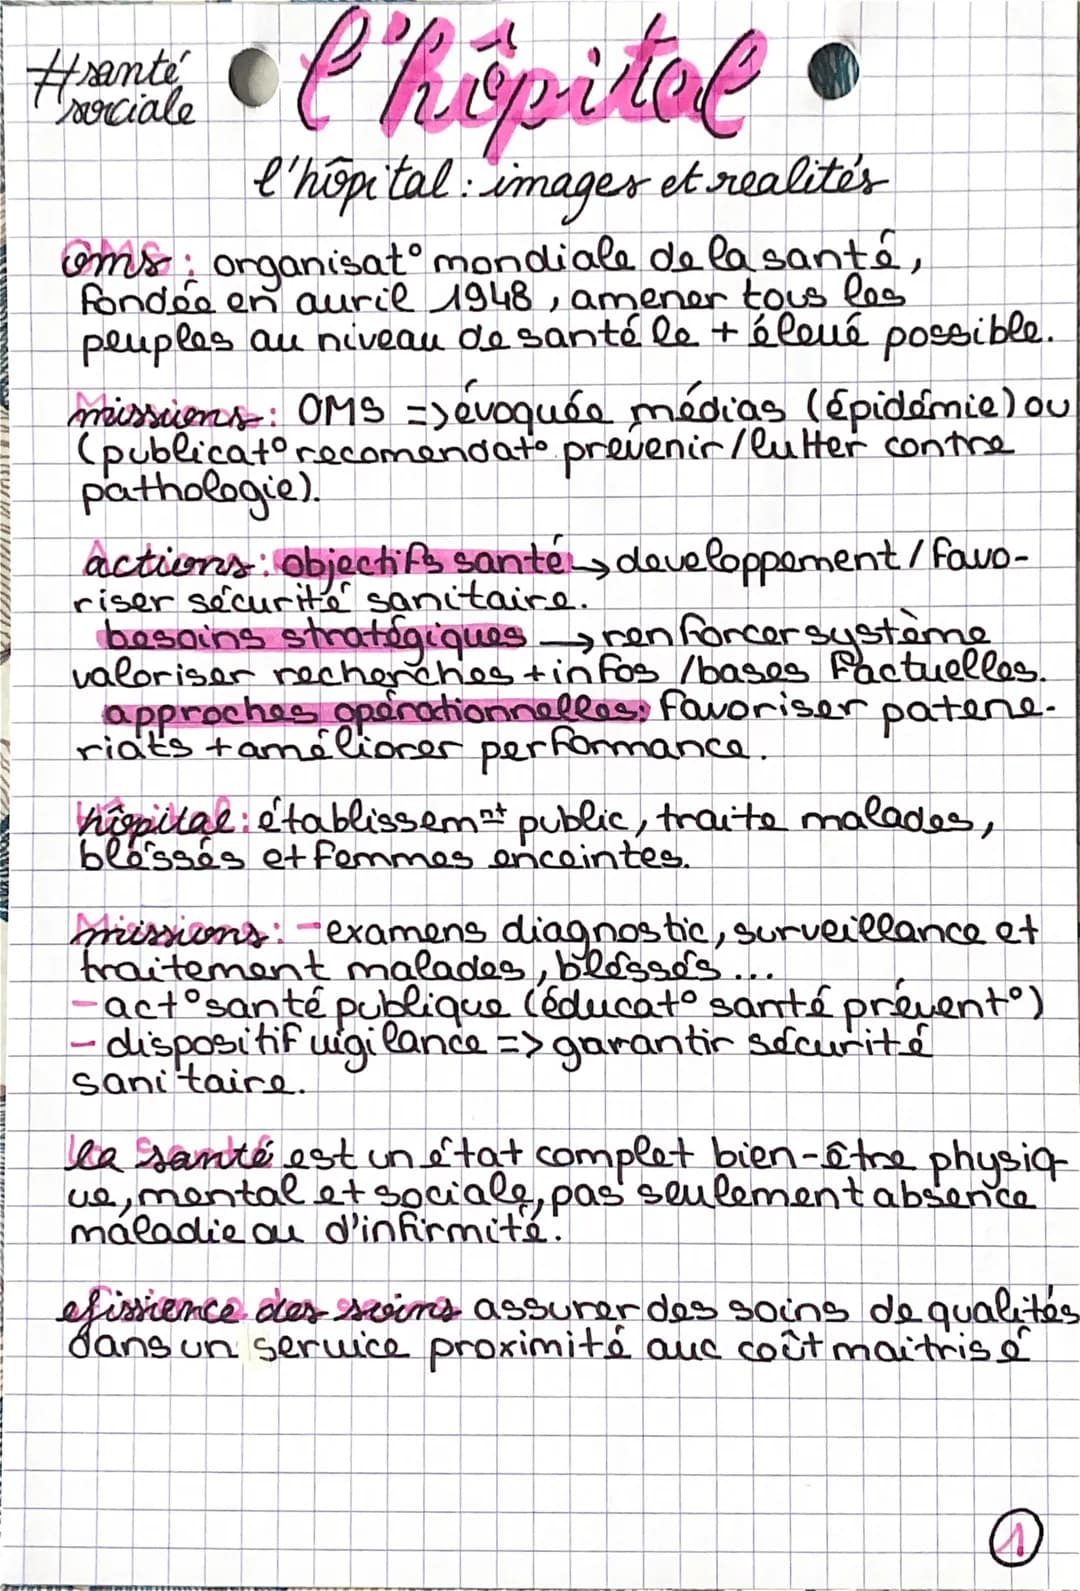 #santé
sociale
l'hôpital
l'hôpital : images et realités
oms : organisat° mondiale de la santé,
fondée en avril 1948, amener tous les
peuples au niveau de santé le + élevé possible.
missions : OMS => évoquée médias (épidémie) ou
(publicat° recomendat° prévenir/lutter contre
pathologie).
actions : objectifs santé → developpement / favo-
riser sécurité sanitaire.
besoins stratégiques → renforcer système
valoriser recherches + infos /bases factuelles.
approches opérationnelles: favoriser patene-
riats + améliorer performance.
hôpital : établissem nt public, traite malades,
blessés et femmes enceintes.
Missions : - examens diagnostic, surveillance et
traitement malades, blessés...
- act° santé publique (éducat° santé prévent°)
- dispositif vigilance => garantir sécurité
sanitaire.
la santé est un état complet bien-être physiq
ue, mental et sociale, pas seulement absence
maladie ou d'infirmité.
efissience des soins assurer des soins de qualités
dans un service proximité auc coût maitrisé
1